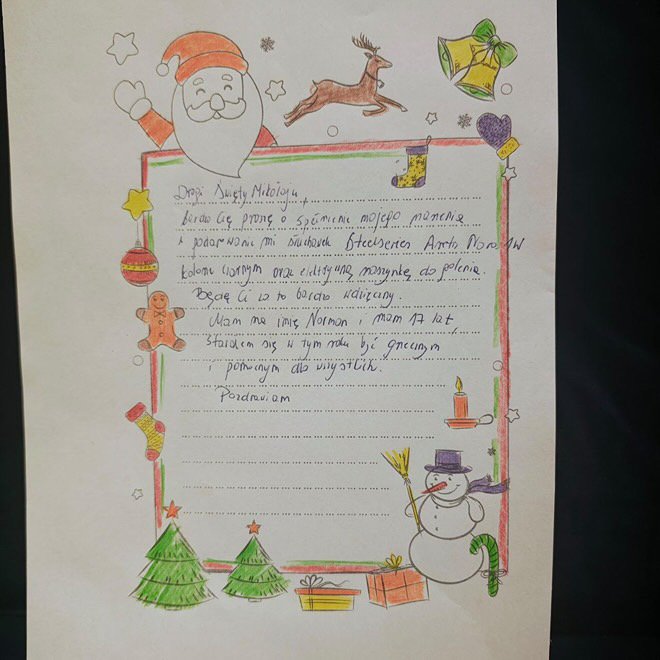 Drogi Święty Mikołaju,
bardzo Cię proszę o spełnienie mojego marzenia
i podarowanie mi słuchawek Steelseries Arctis Nova 1 W
kolorze czarnym oraz elektryczną maszynkę do golenia.
Będę Ci za to bardzo wdzięczny.
Mam na imię Norman i mam 17 lat,
starałem się w tym roku być grzecznym
i pomocnym dla wszystkich.
Pozdrawiam